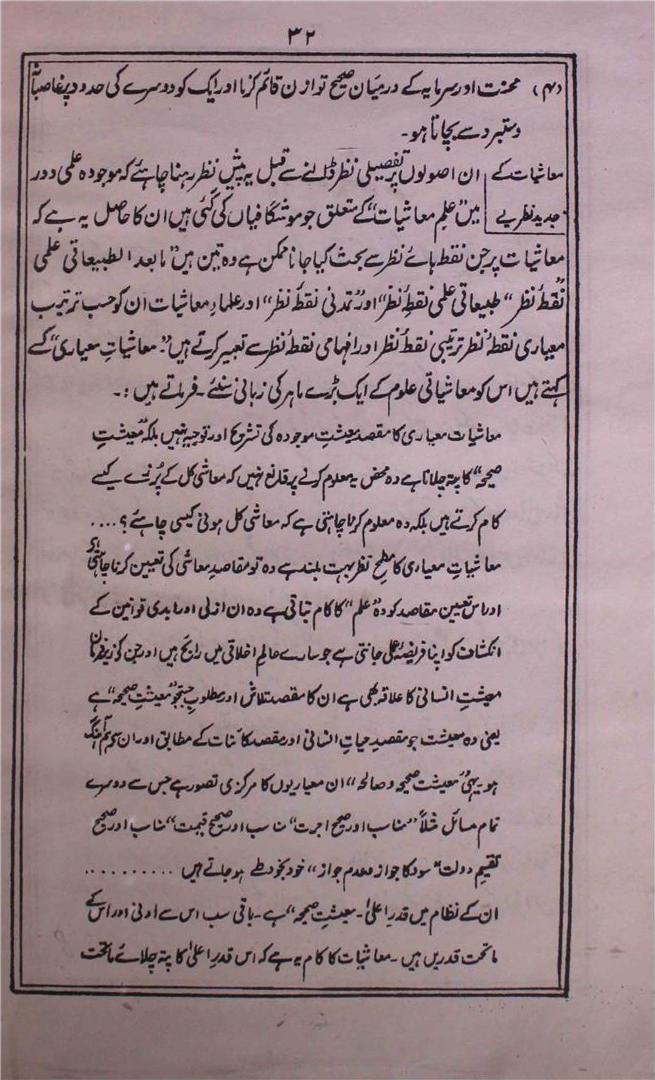 ۳۲
(۴) محنت اور سرمایہ کے درمیان صحیح توازن قائم کرنا اور ایک کو دوسرے کی حدود پر غاصبانہ
دستبرد سے بچانا ہو۔
معاشیات کے جدید نظریے
ان اصولوں پر تفصیلی نظر ڈالنے سے قبل یہ پیش نظر رہنا چاہئے کہ موجودہ علمی دور
میں "علم معاشیات" کے متعلق جو موشگافیاں کی گئی ہیں ان کا حاصل یہ ہے کہ
معاشیات پر جن نقطہ ہائے نظر سے بحث کیا جانا ممکن ہے وہ تین ہیں "ما بعد الطبیعاتی علمی
نقطۂ نظر" "طبیعاتی علمی نقطۂ نظر" اور "تمدنی نقطۂ نظر" اور علماءِ معاشیات ان کو حسب ترتیب
معیاری نقطۂ نظر ترتیبی نقطۂ نظر اور افہامی نقطۂ نظر سے تعبیر کرتے ہیں۔ "معاشیاتِ معیاری" کسے
کہتے ہیں اس کو معاشیاتی علوم کے ایک بڑے ماہر کی زبانی سنئے۔ فرماتے ہیں :۔
معاشیات معیاری کا مقصد معیشتِ موجودہ کی تشریح اور توجیہ نہیں بلکہ "معیشتِ
صحیحہ" کا پتہ چلانا ہے وہ محض یہ معلوم کرنے پر قانع نہیں کہ معاشی کل کے پُرزے کیسے
کام کرتے ہیں بلکہ وہ معلوم کرنا چاہتی ہے کہ معاشی کل ہونی کیسی چاہئے؟....
معاشیاتِ معیاری کا مطمح نظر بہت بلند ہے وہ تو مقاصدِ معاشی کی تعیین کرنا چاہتی ہے
اور اس تعیین مقاصد کو وہ "علم" کا کام بتاتی ہے وہ ان ازلی اور ابدی قوانین کے
انکشاف کو اپنا فریضۂ علمی جانتی ہے جو سارے عالمِ اخلاقی میں رائج ہیں اور جن کو زیرِ فرمان
معیشتِ انسانی کا علاقہ بھی ہے ان کا مقصد تلاش اور مطلوبِ جستجو "معیشتِ صحیحہ" ہے
یعنی وہ معیشت جو مقصدِ حیاتِ انسانی اور مقصدِ کائنات کے مطابق اور ان سے ہم آہنگ
ہو یہی "معیشت صحیحہ و صالحہ" ان معیاریوں کا مرکزی تصور ہے جس سے دوسرے
تمام مسائل مثلاً "مناسب اور صحیح اجرت" "مناسب اور صحیح قیمت" "مناسب اور صحیح
تقسیمِ دولت" "سود کا جواز و عدم جواز" خود بخود طے ہو جاتے ہیں ..........
ان کے نظام میں قدرِ اعلیٰ۔ معیشتِ صحیحہ" ہے۔ باقی سب اس سے ادنیٰ اور اس کے
ماتحت قدریں ہیں۔ معاشیات کا کام یہ ہے کہ اس قدرِ اعلیٰ کا پتہ چلائے ماتحت